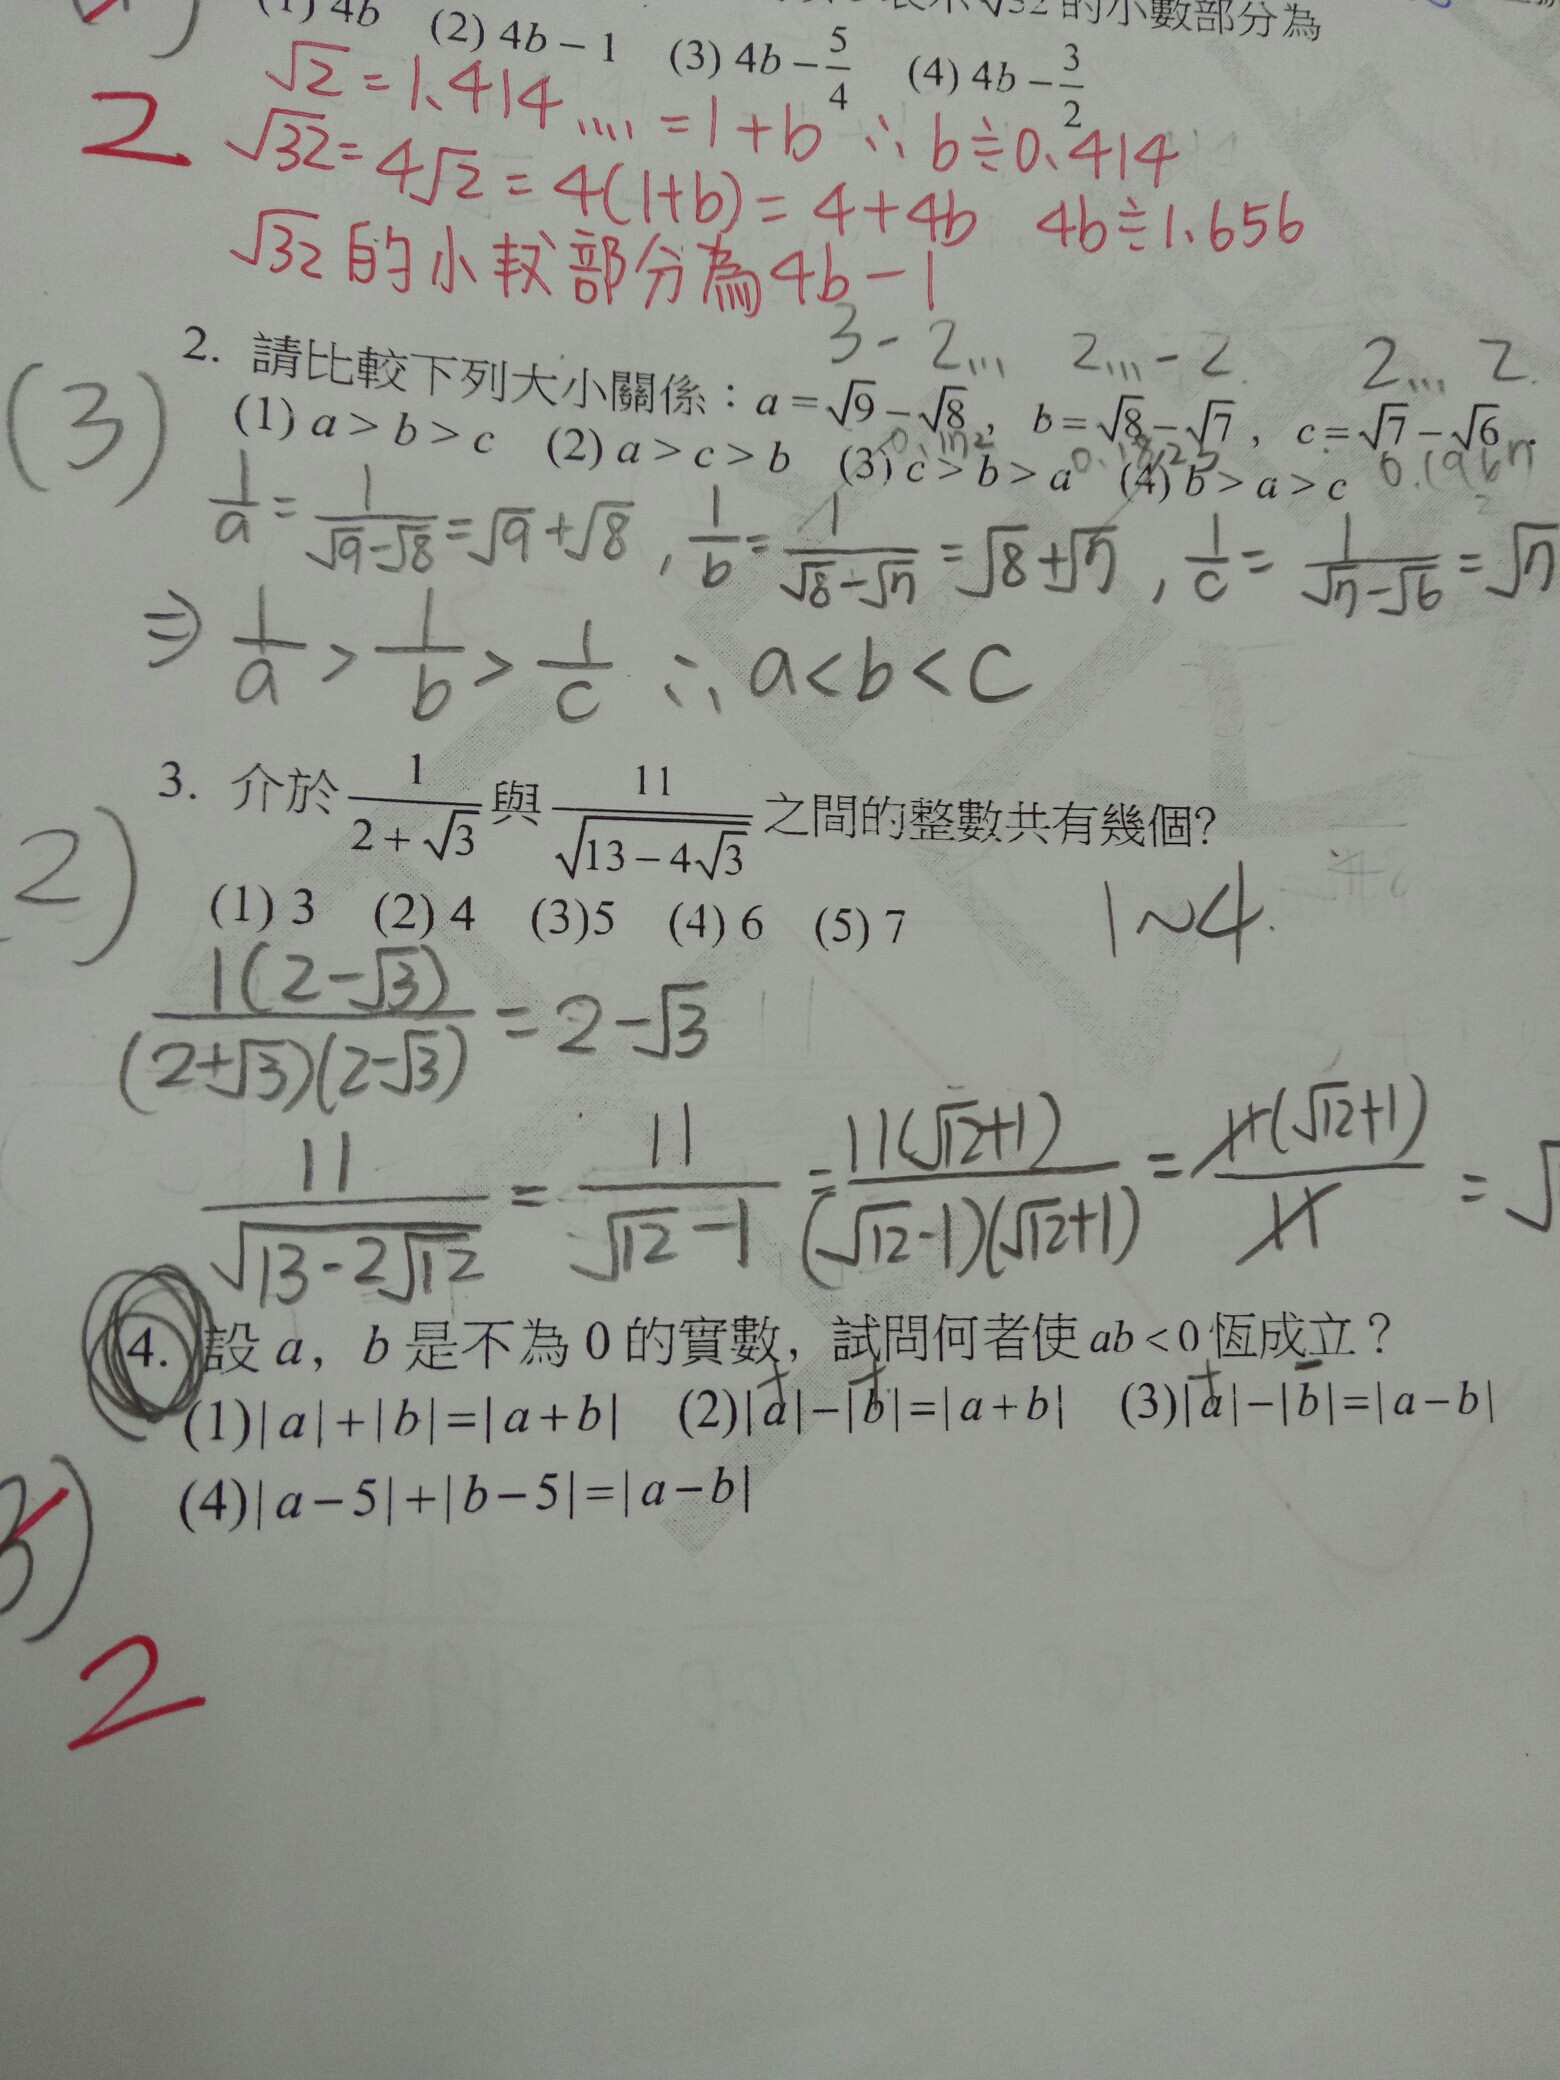 (1) 4b (2) 4b − 1 (3) 4b − 5/4 (4) 4b − 3/2
的小數部分為
√2 = 1.414.... = 1 + b ∴ b≒0.414
2
√32 = 4√2 = 4(1+b) = 4 + 4b 4b≒1.656
√32 的小数部分為 4b − 1
3 - 2... 2... - 2. 2... 2.
(3)
2. 請比較下列大小關係：a = √9 − √8， b = √8 − √7， c = √7 − √6．
(1) a > b > c (2) a > c > b (3) c > b > a (4) b > a > c
1/a = 1/(√9−√8) = √9 + √8 , 1/b = 1/(√8−√7) = √8 + √7 , 1/c = 1/(√7−√6) = √7
⇒ 1/a > 1/b > 1/c ∴ a < b < c
2)
3. 介於 1/(2 + √3) 與 11/√(13 − 4√3) 之間的整數共有幾個?
(1) 3 (2) 4 (3)5 (4) 6 (5) 7
1~4.
1(2−√3)/((2+√3)(2−√3)) = 2 − √3
11/√(13−2√12) = 11/(√12−1) = 11(√12+1)/((√12−1)(√12+1)) = 11(√12+1)/11 = √
4. 設 a，b 是不為 0 的實數，試問何者使 ab < 0 恆成立？
+ + + −
(1)|a|+|b|=|a+b| (2)|a|−|b|=|a+b| (3)|a|−|b|=|a−b|
(4)|a−5|+|b−5|=|a−b|
3)
2